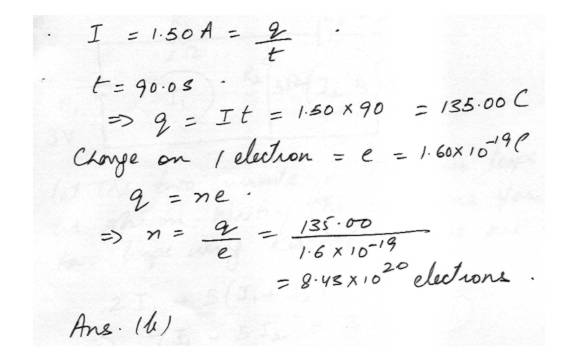 I = 1.50 A = q/t
t = 90.0 s
⇒ q = It = 1.50 × 90 = 135.00 C
Charge on 1 electron = e = 1.60 × 10^-19 C
q = ne.
⇒ n = q/e = 135.00/1.6 × 10^-19
= 8.43 × 10^20 electrons.
Ans. (b)